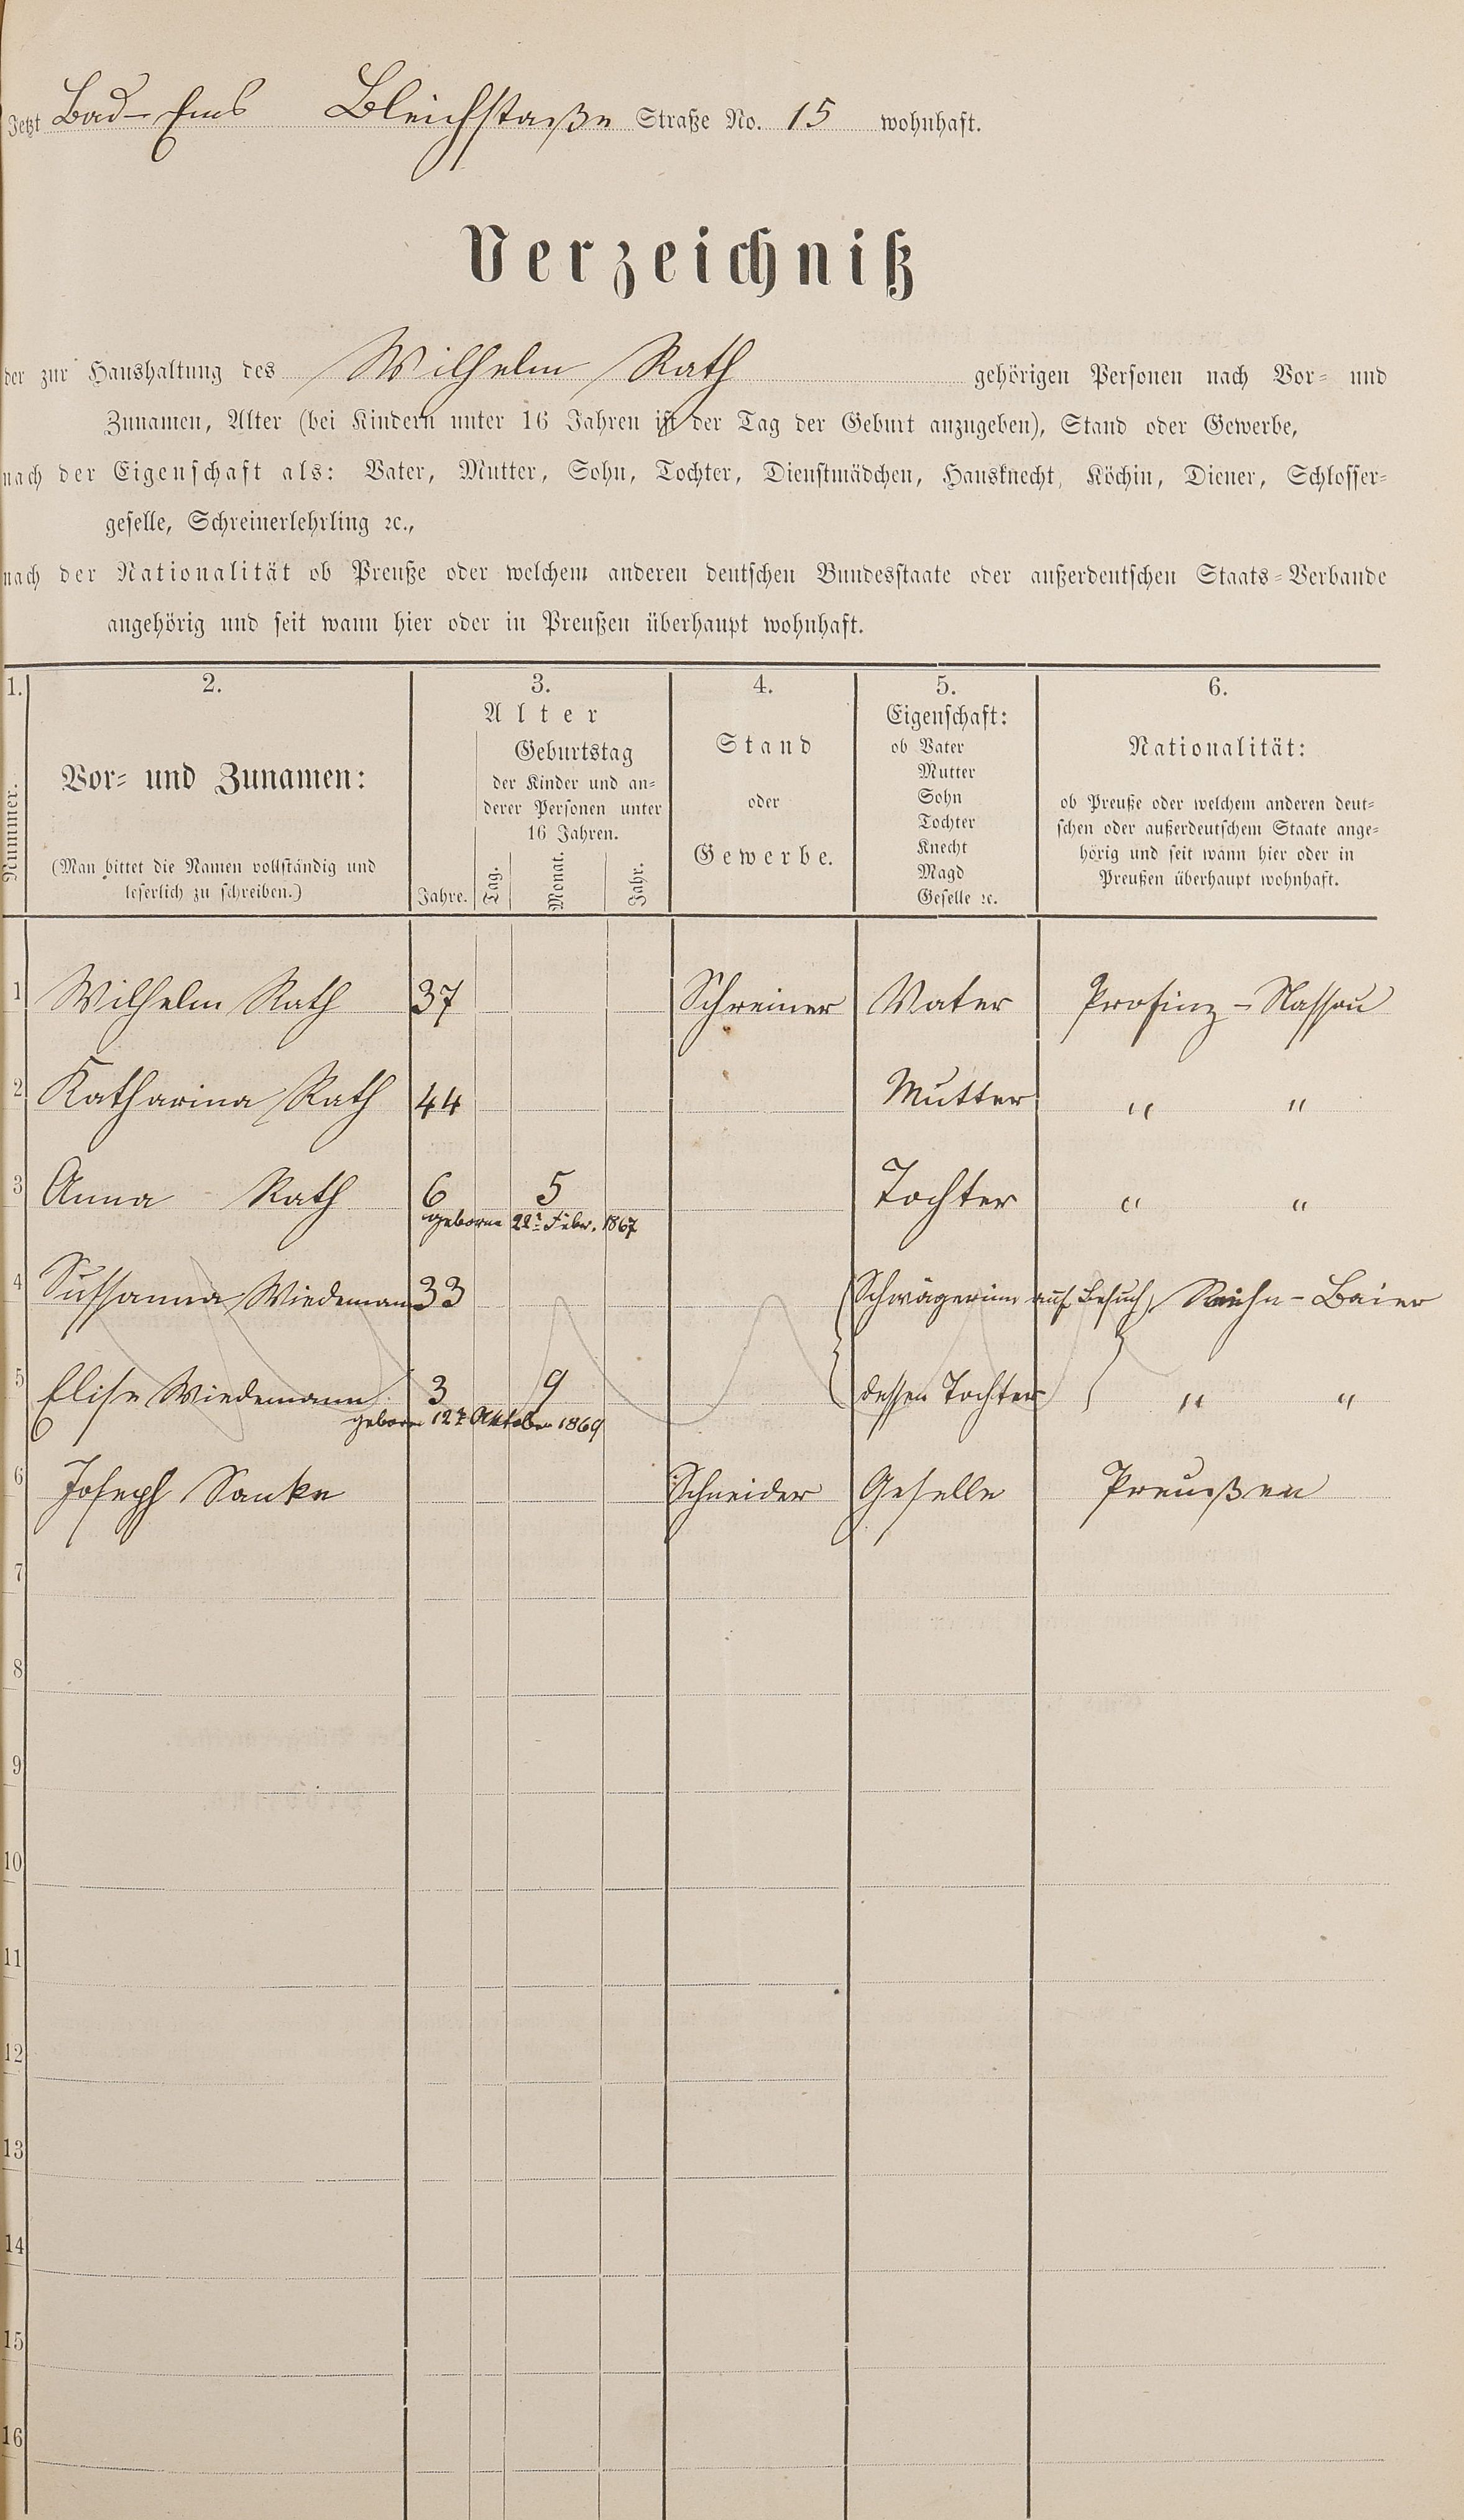 Jetzt Bad-Ems Bleichstaße Straße No. 15 wohnhaft.
Verzeichniß
der zur Haushaltung des Wilhelm Rath gehörigen Personen nach Vor- und
Zunamen, Alter (bei Kindern unter 16 Jahren ist der Tag der Geburt anzugeben), Stand oder Gewerbe,
nach der Eigenschaft als: Vater, Mutter, Sohn, Tochter, Dienstmädchen, Hausknecht, Köchin, Diener, Schlosser-
geselle, Schreinerlehrling ꝛc.,
nach der Nationalität ob Preuße oder welchem anderen deutschen Bundesstaate oder außerdeutschen Staats-Verbande
angehörig und seit wann hier oder in Preußen überhaupt wohnhaft.
1. 2. 3. 4. 5. 6.
Nummer.
Vor- und Zunamen:
(Man bittet die Namen vollständig und
leserlich zu schreiben.)
Alter
Jahre.
Geburtstag
der Kinder und an-
derer Personen unter
16 Jahren.
Tag. Monat. Jahr.
Stand
oder
Gewerbe.
Eigenschaft:
ob Vater
Mutter
Sohn
Tochter
Knecht
Magd
Geselle ꝛc.
Nationalität:
ob Preuße oder welchem anderen deut-
schen oder außerdeutschem Staate ange-
hörig und seit wann hier oder in
Preußen überhaupt wohnhaft.
1 Wilhelm Rath 37 Schreiner Vater Profinz-Nassau
2 Katharina Rath 44 Mutter " "
3 Anna Rath 6 5 Tochter " "
geborne 22t Febr. 1867
4 Sussanna Wiedemann 33 (Schwägerinn auf Besuch) -Baier
5 Elise Wiedemann 3 9 dessen Tochter " "
geborn 12t Oktober 1869
6 Joseph Sanke Schneider Geselle Preußen
7
8
9
10
11
12
13
14
15
16